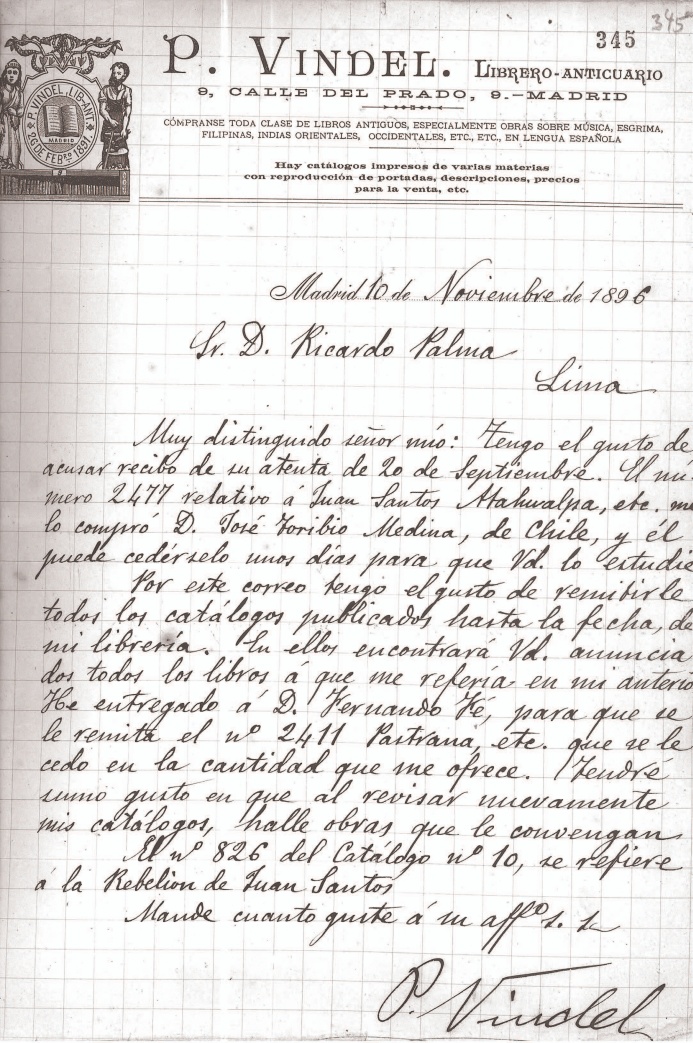 345
345
P. VINDEL. LIBRERO-ANTICUARIO
9, CALLE DEL PRADO, 9.—MADRID
CÓMPRANSE TODA CLASE DE LIBROS ANTIGUOS, ESPECIALMENTE OBRAS SOBRE MÚSICA, ESGRIMA,
FILIPINAS, INDIAS ORIENTALES, OCCIDENTALES, ETC., ETC., EN LENGUA ESPAÑOLA
Hay catálogos impresos de varias materias
con reproducción de portadas, descripciones, precios
para la venta, etc.
P. VINDEL, LIB-ANT.
MADRID
26 DE FEBRO 1891
Madrid 10 de Noviembre de 1896
Sr. D. Ricardo Palma
Lima
Muy distinguido señor mío: Tengo el gusto de
acusar recibo de su atenta de 20 de Septiembre. El nu-
mero 2477 relativo á Juan Santos Atahualpa, etc. me
lo compró D. José Toribio Medina, de Chile, y él
puede cedérselo unos días para que Vd. lo estudie
Por este correo tengo el gusto de remitirle
todos los catálogos publicados hasta la fecha, de
mi librería. En ellos encontrará Vd. anuncia
dos todos los libros á que me refería en mi anterio
He entregado á D. Fernando Fé, para que se
le remita el nº 2411 Pastrana, etc. que se le
cedo en la cantidad que me ofrece. Tendré
sumo gusto en que al revisar nuevamente
mis catálogos, halle obras que le convengan
El nº 826 del Catálogo nº 10, se refiere
á la Rebelion de Juan Santos
Mande cuanto guste á su affº s. s.
P. Vindel